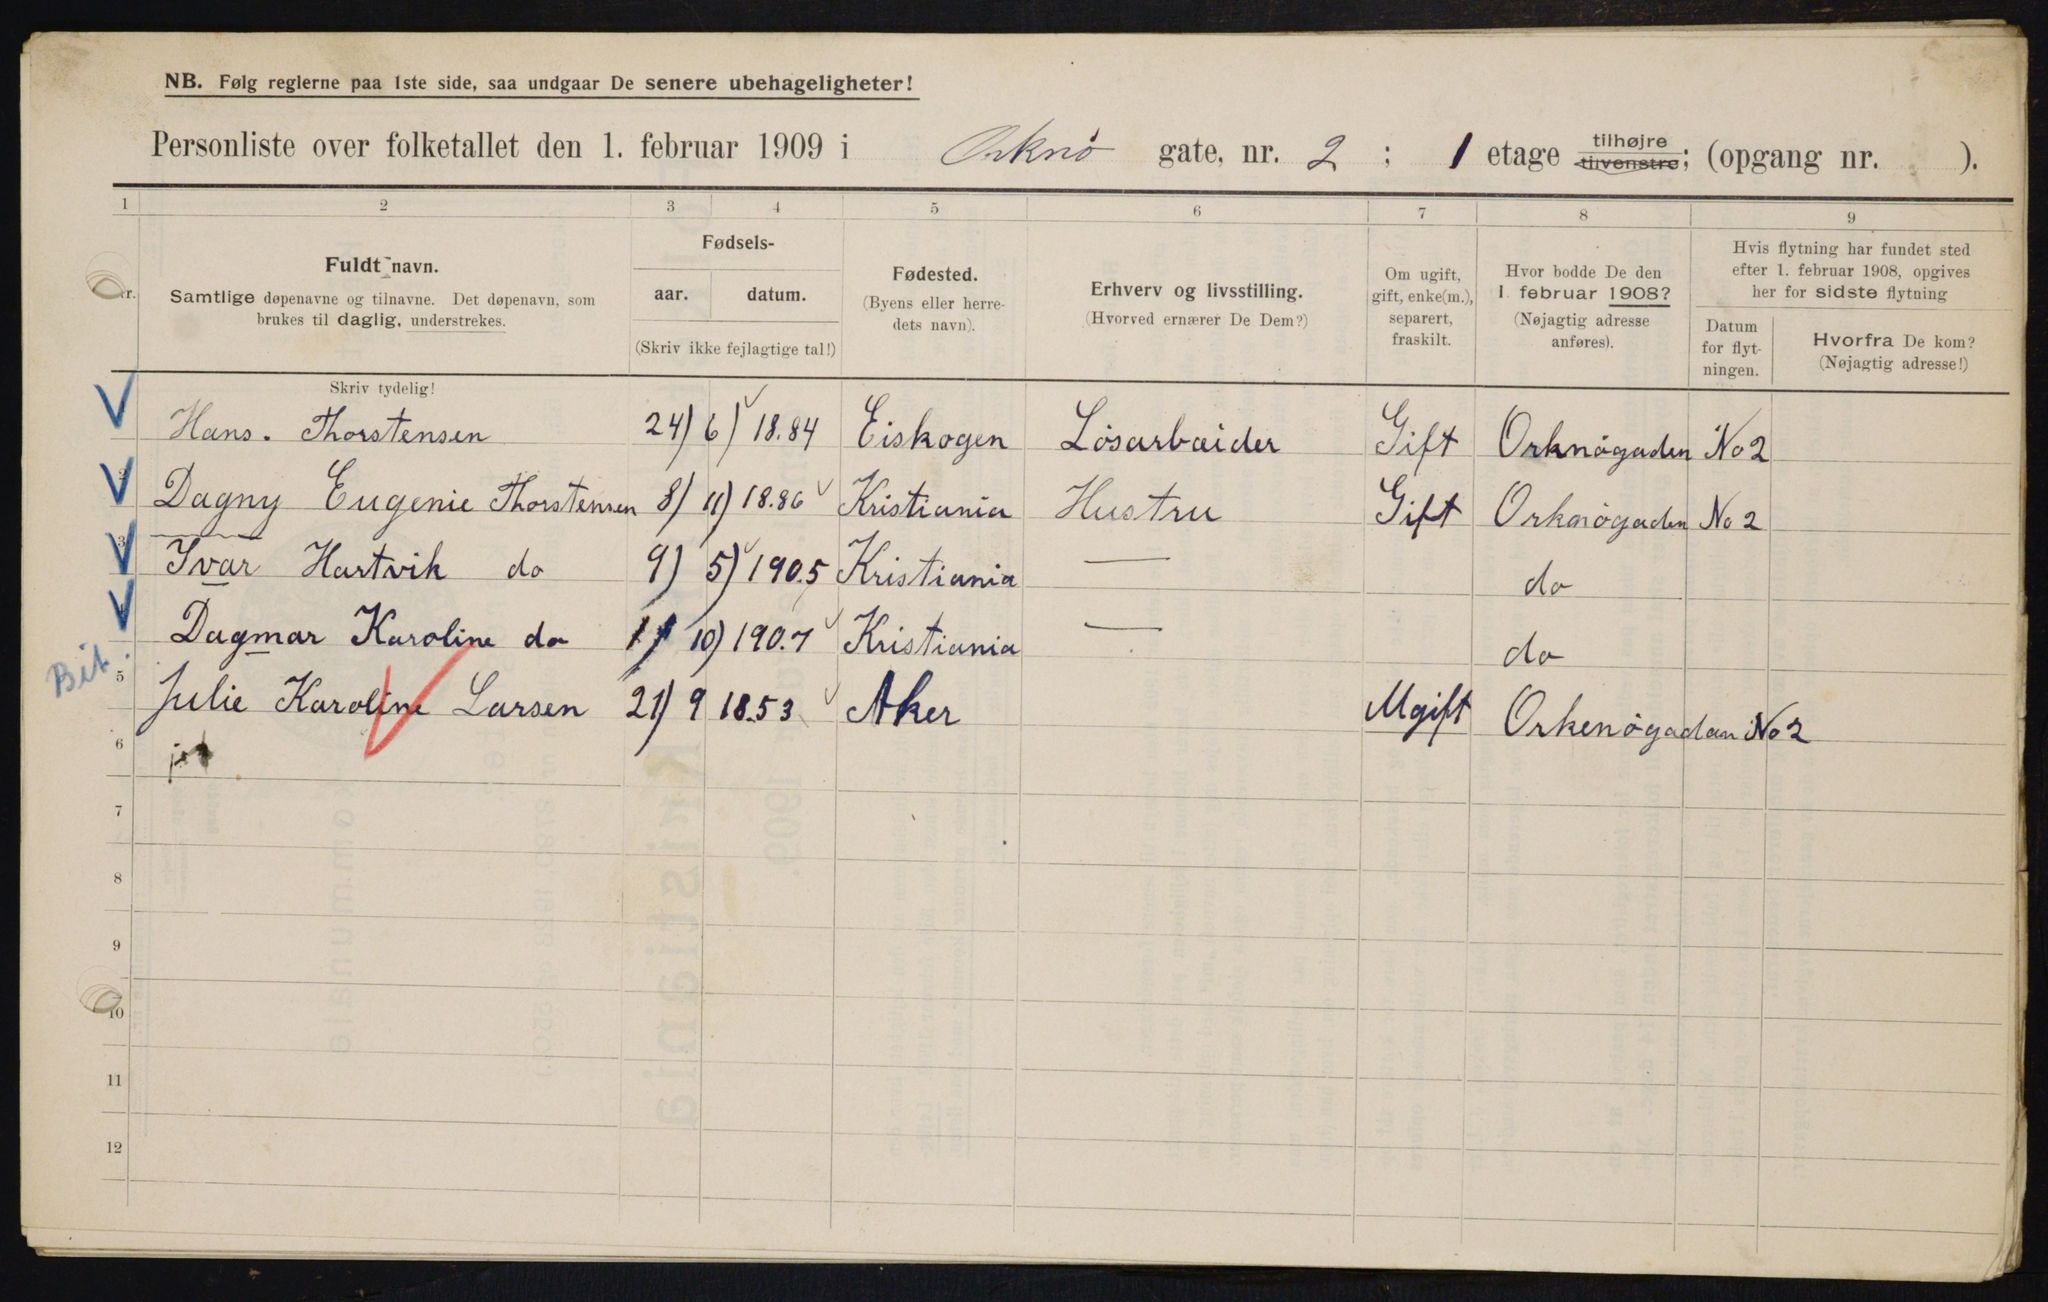 NB. Følg reglerne paa 1ste side, saa undgaar De senere ubehageligheter!
Personliste over folketallet den 1. februar 1909 i Orknø gate, nr. 2 ; 1 etage tilhøjre tilvenstre; (opgang nr. ).
1 2 3 4 5 6 7 8 9
Fuldt navn.
Samtlige døpenavne og tilnavne. Det døpenavn, som
brukes til daglig, understrekes.
Fødsels-
aar. datum.
(Skriv ikke fejlagtige tal!)
Fødested.
(Byens eller herre-
dets navn).
Erhverv og livsstilling.
(Hvorved ernærer De Dem?)
Om ugift,
gift, enke(m.),
separert,
fraskilt.
Hvor bodde De den
1. februar 1908?
(Nøjagtig adresse
anføres).
Hvis flytning har fundet sted
efter 1. februar 1908, opgives
her for sidste flytning
Datum
for flyt-
ningen.
Hvorfra De kom?
(Nøjagtig adresse!)
Skriv tydelig!
Hans. Thorstensen 24) 6) 18.84 Eiskogen Løsarbæider Gift Orknøgaden No 2
Dagny Eugenie Thorstensen 8) 11) 18.86 Kristiania Hustru Gift Orknøgaden No 2
3 Ivar Hartvik do 9) 5) 190.5 Kristiania — do
Dagmar Karoline do 11 10) 190.7 Kristiania — do
Bit.
5 Julie Karoline Larsen 21) 9 18.53 Aker Ugift Orkenøgadan No 2
6
7
8
9
10
11
12